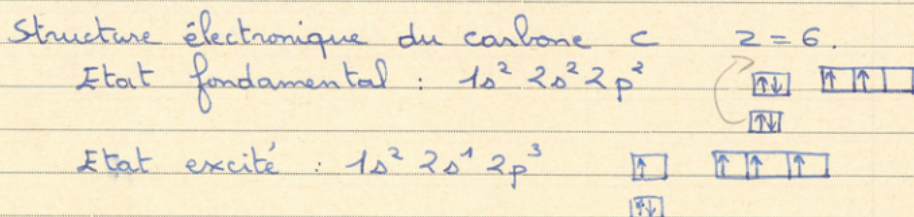 Structure électronique du carbone C Z = 6.
Etat fondamental : 1s² 2s² 2p² ↑↓ ↑ ↑
↑↓
Etat excité : 1s² 2s¹ 2p³ ↑ ↑ ↑ ↑
↑↓